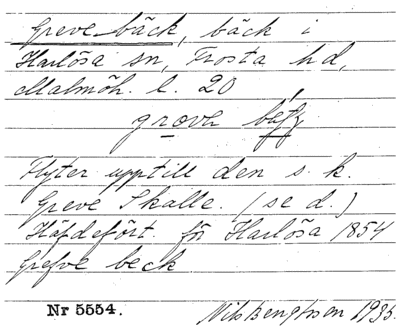 Greve bäck, bäck i
Harlösa sn, Frosta hd,
Malmöh. l. 20
Flyter upptill den s. k.
Greve Skalle. (se d.)
Häfdefört. för Harlösa 1854
Grefve beck
Nr 5554. Nils Bengtsson 1935.